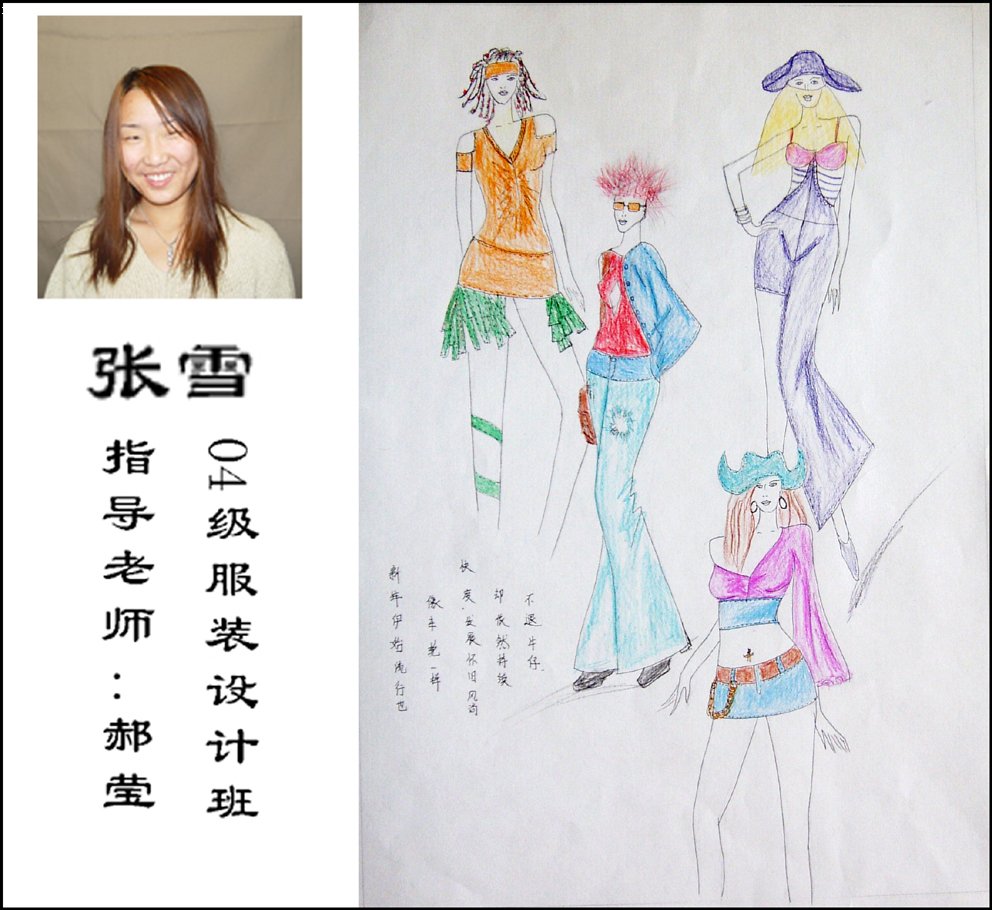 张雪
04级服装设计班
指导老师：郝莹
新年伊始流行也
像车轮一样
快发展怀旧风尚
却依然持续
不退牛仔